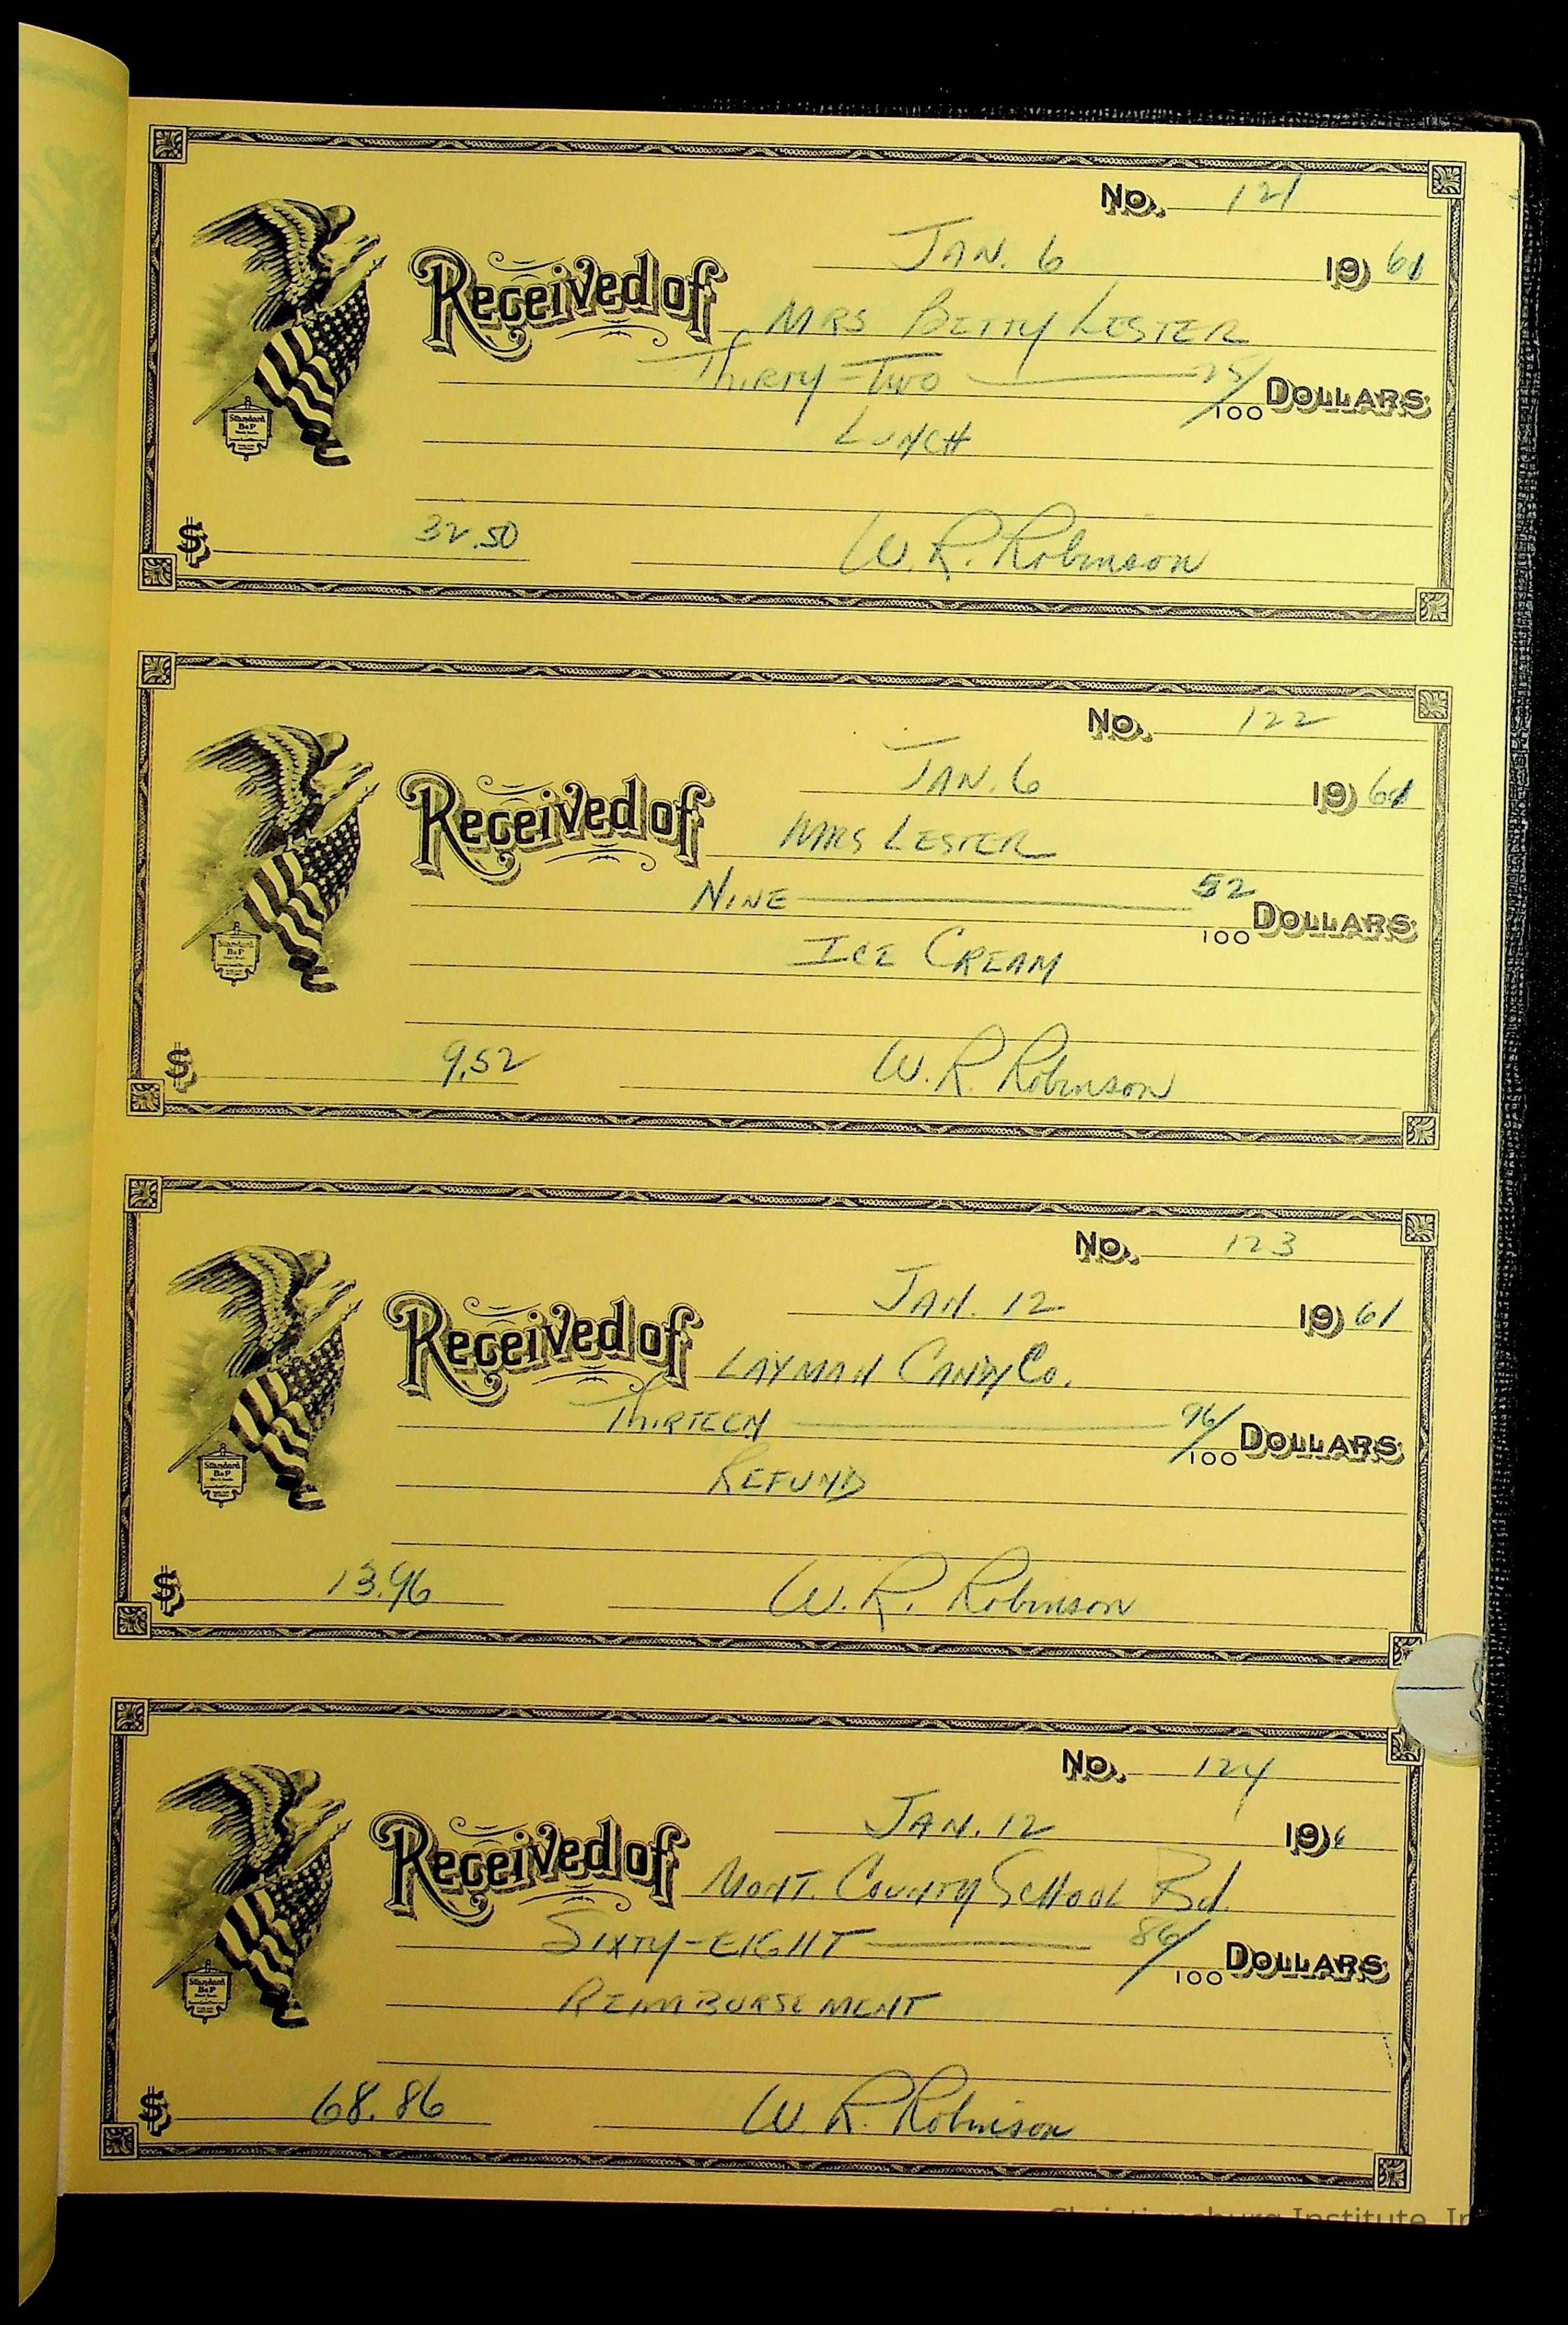 No. 121
JAN. 6 1961
Received of MRS BETTY LESTER
THIRTY-TWO 25/100 DOLLARS
LUNCH
$ 32.50 W. R. Robinson
Standard B&P
No. 122
JAN. 6 1961
Received of MRS LESTER
NINE 52 100 DOLLARS
ICE CREAM
$ 9.52 W. R. Robinson
Standard B&P
No. 123
JAN. 12 1961
Received of LAYMAN CANDY Co.
THIRTEEN 96/100 DOLLARS
REFUND
$ 13.96 W. R. Robinson
Standard B&P
No. 124
JAN. 12 196
Received of MONT. COUNTY SCHOOL Bd.
SIXTY-EIGHT 86/100 DOLLARS
REIMBURSEMENT
$ 68.86 W. R. Robinson
Standard B&P
Christiansburg Institute, In